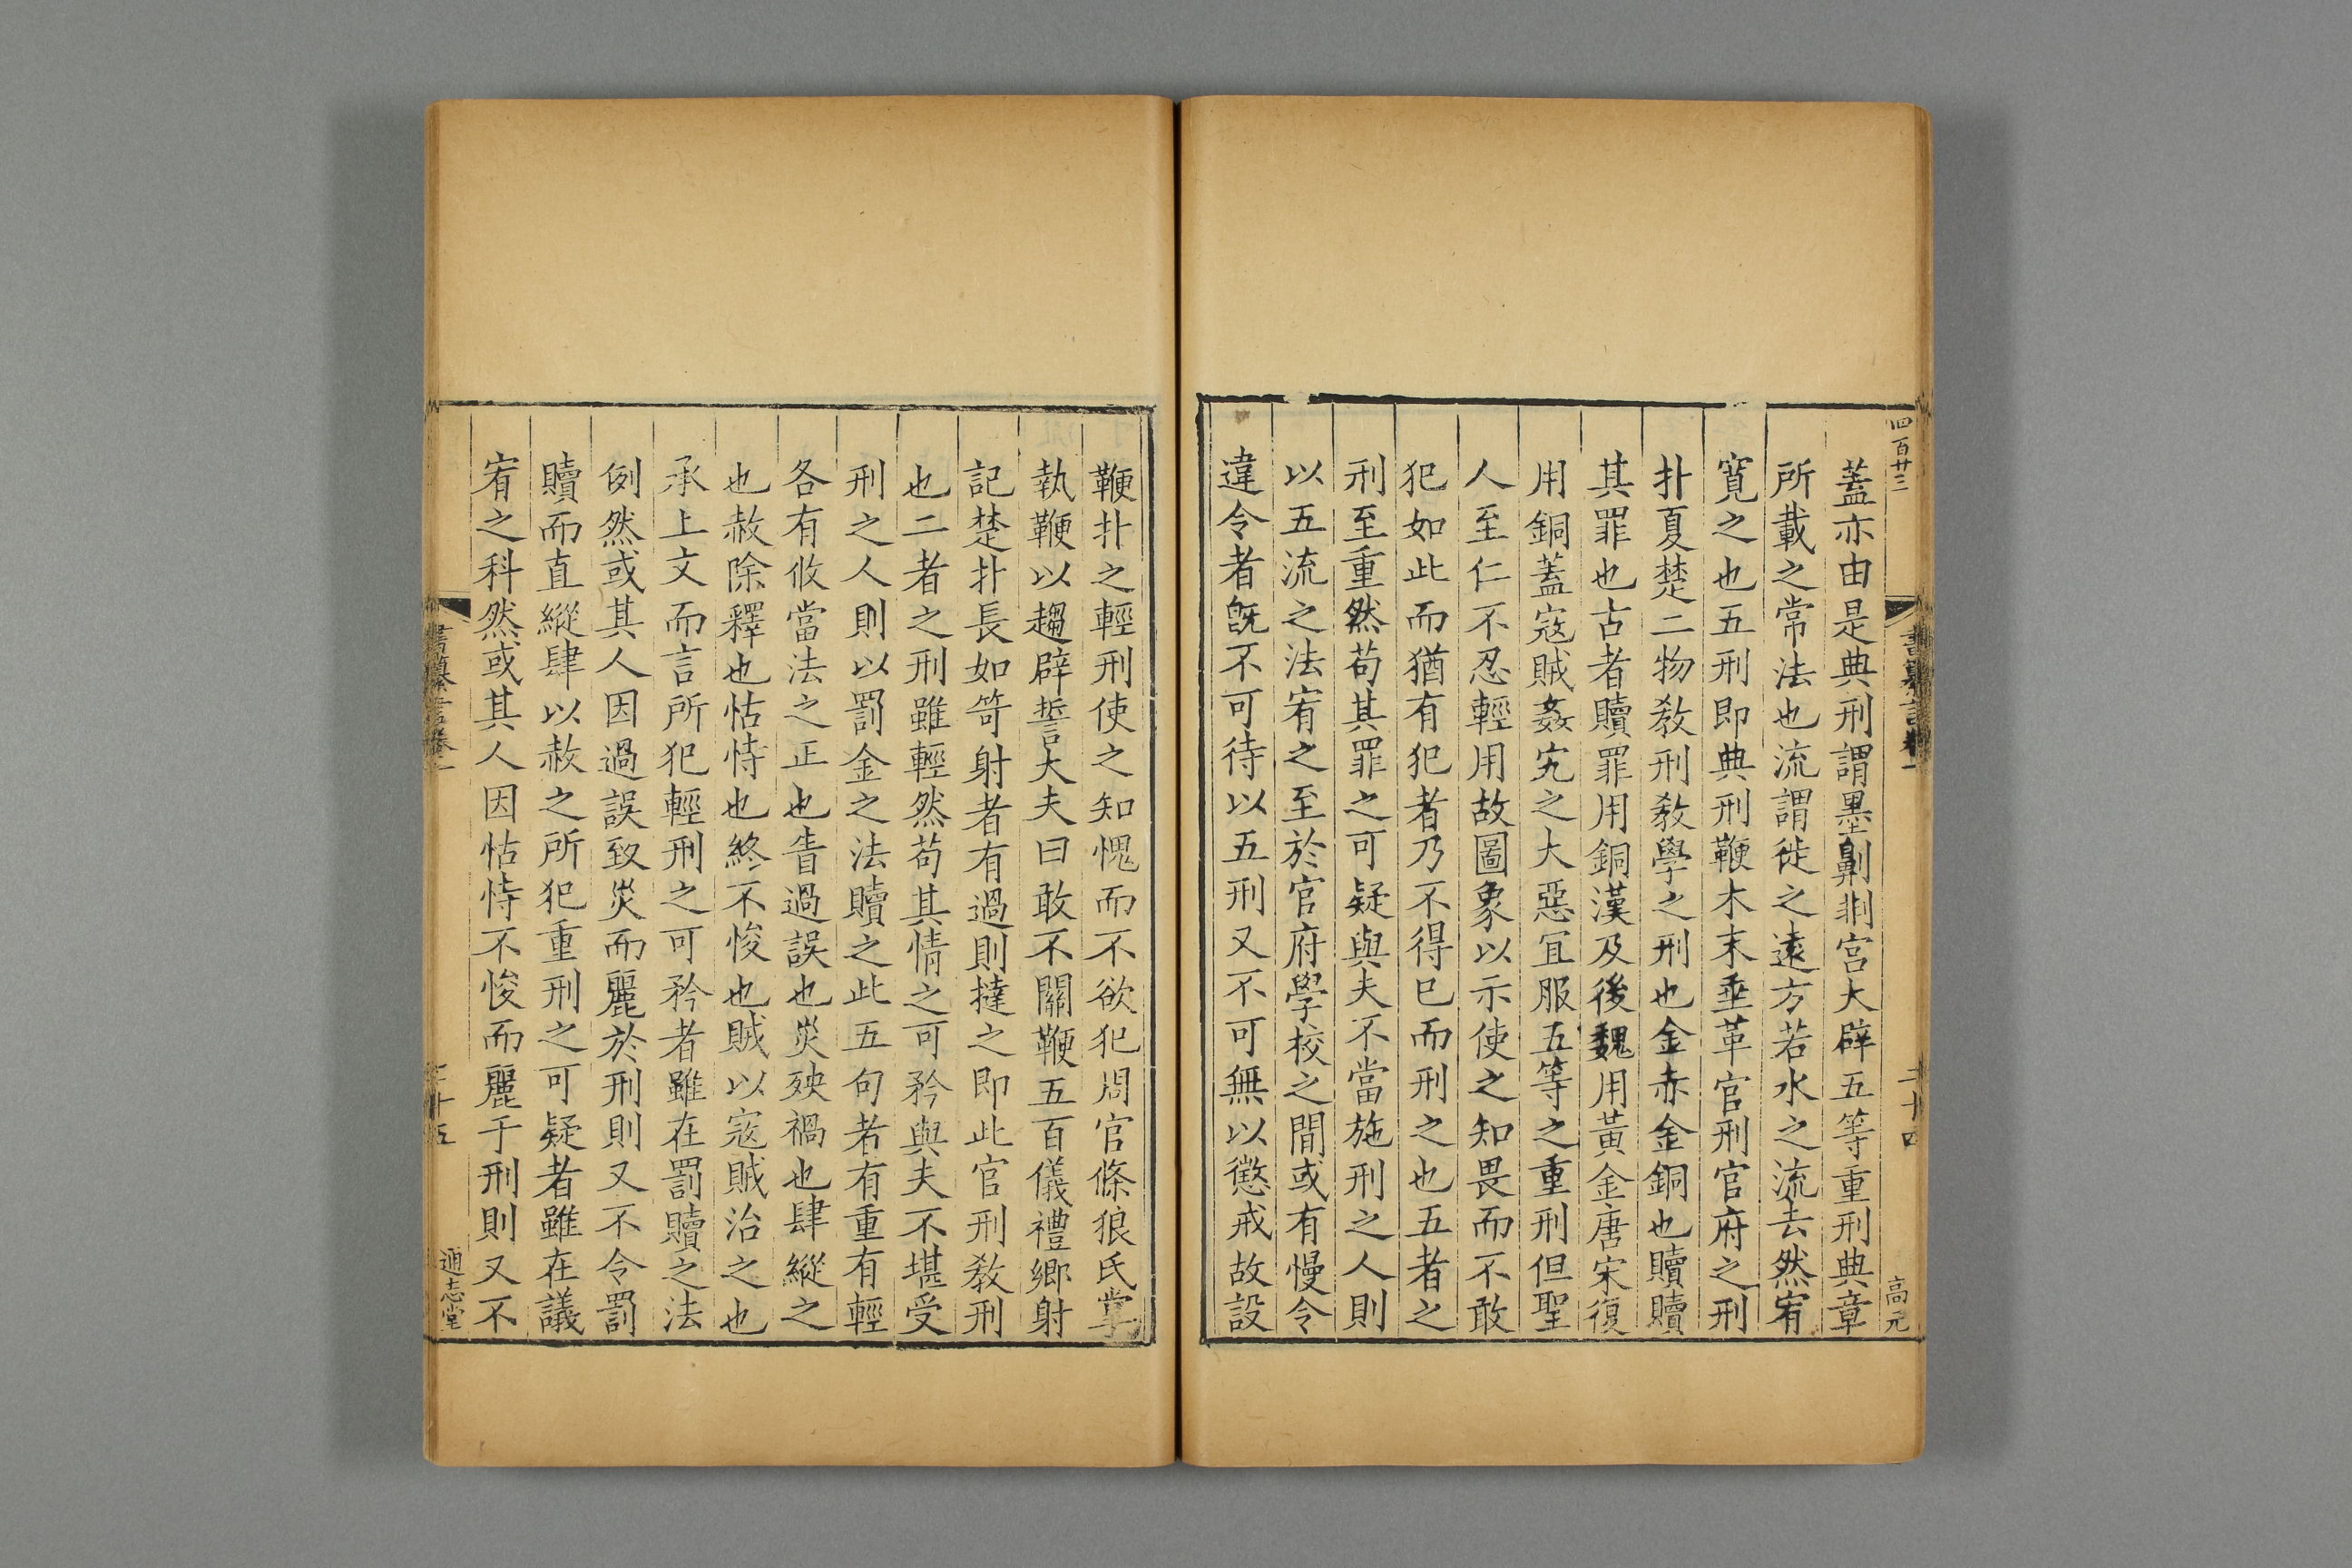 四百廿三
書纂言卷一
二十四
高元
蓋亦由是典刑謂墨劓剕宫大辟五等重刑典章
所載之常法也流謂徙之遠方若水之流去然宥
寛之也五刑即典刑鞭木末垂革官刑官府之刑
扑夏楚二物敎刑敎學之刑也金赤金銅也贖贖
其罪也古者贖罪用銅漢及後魏用黃金唐宋復
用銅蓋宼賊姦宄之大惡冝服五等之重刑但聖
人至仁不忍輕用故圖象以示使之知畏而不敢
犯如此而猶有犯者乃不得巳而刑之也五者之
刑至重然苟其罪之可疑與夫不當施刑之人則
以五流之法宥之至於官府學校之間或有慢令
違令者旣不可待以五刑又不可無以懲戒故設
鞭扑之輕刑使之知愧而不欲犯周官條狼氏掌
執鞭以趨辟誓大夫曰敢不關鞭五百儀禮鄉射
記楚扑長如笴射者有過則撻之即此官刑敎刑
也二者之刑雖輕然苟其情之可矜與夫不堪受
刑之人則以罰金之法贖之此五句者有重有輕
各有攸當法之正也眚過誤也災殃禍也肆縱之
也赦除釋也怙恃也終不悛也賊以宼賊治之也
承上文而言所犯輕刑之可矜者雖在罰贖之法
例然或其人因過誤致災而麗於刑則又不令罰
贖而直縱肆以赦之所犯重刑之可疑者雖在議
宥之科然或其人因怙恃不悛而麗于刑則又不
書纂言卷一
二十五
通志堂